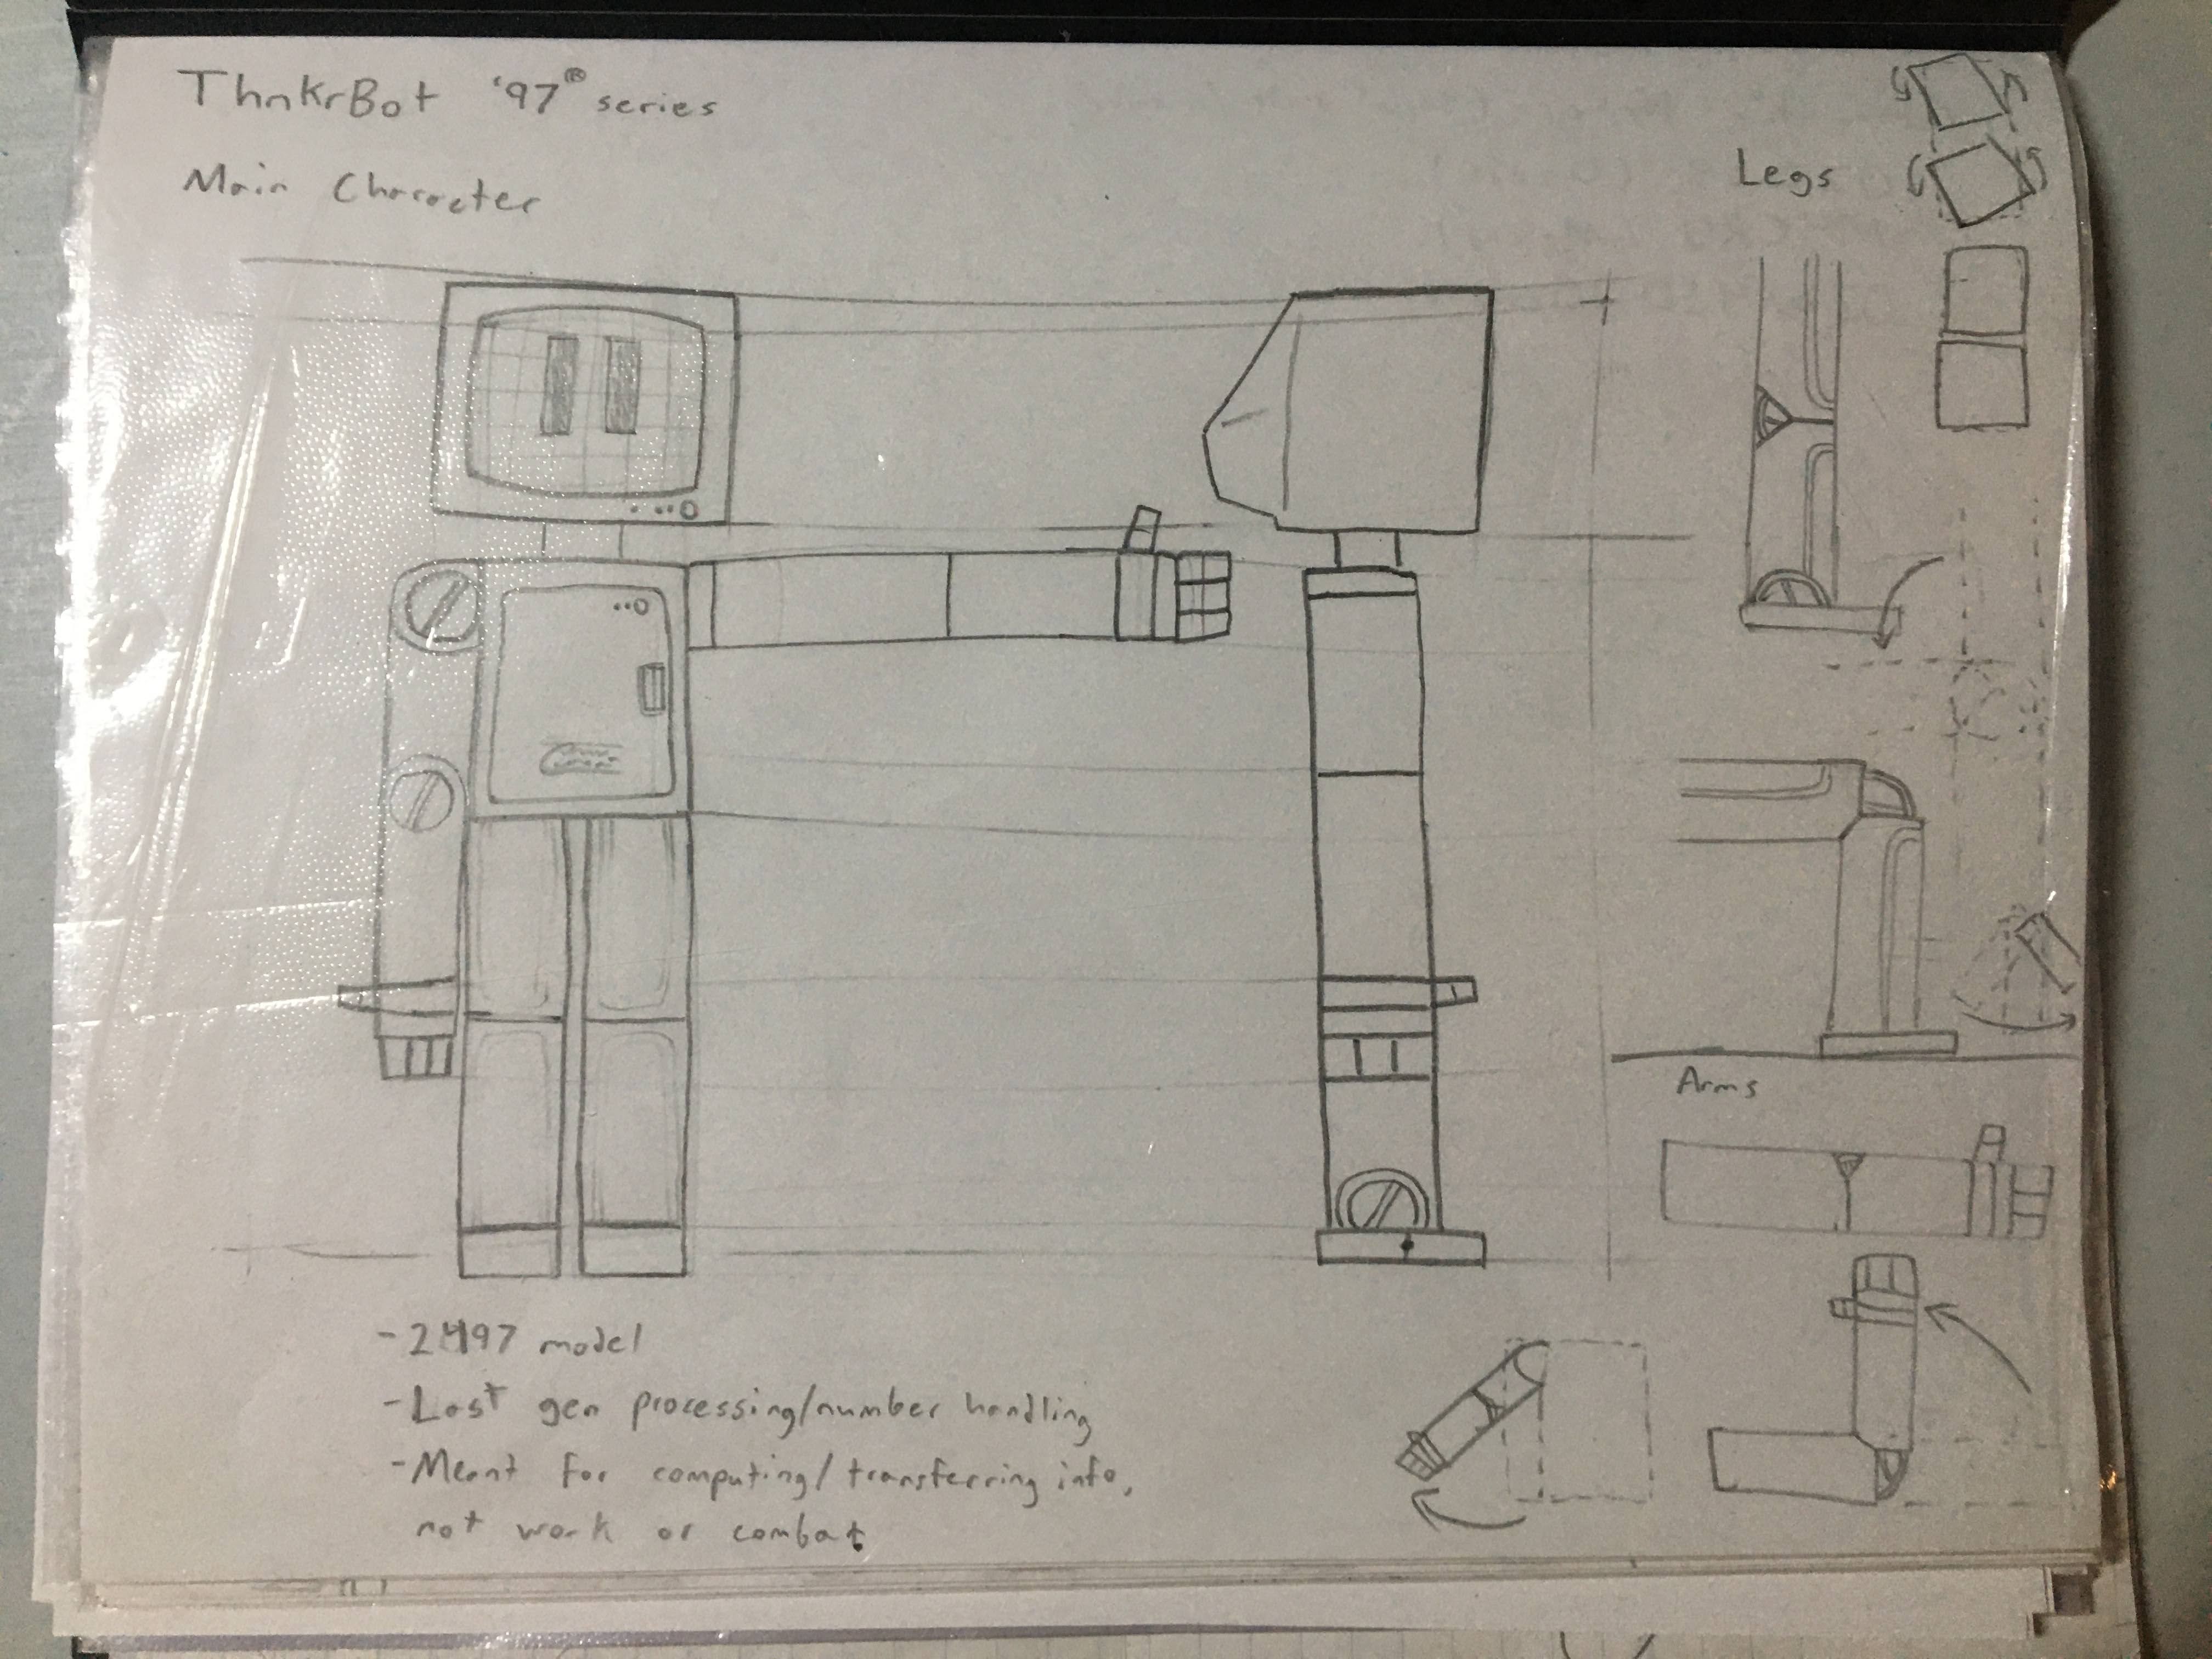 ThnkrBot '97® series
Main Character
Legs
Arms
- 2497 model
- Last gen processing/number handling
- Meant for computing/transferring info,
not work or combat